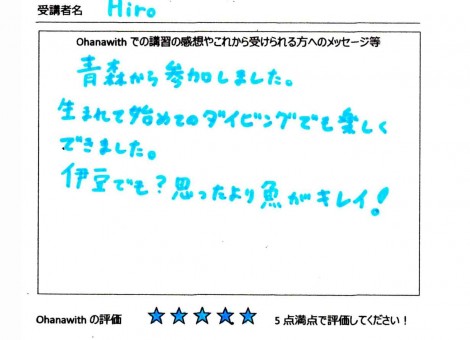 受講者名 Hiro
Ohanawith での講習の感想やこれから受けられる方へのメッセージ等
青森から参加しました。
生まれて始めてのダイビングでも楽しく
できました。
伊豆でも?思ったより魚がキレイ!
Ohanawith の評価 ★★★★★ 5 点満点で評価してください!